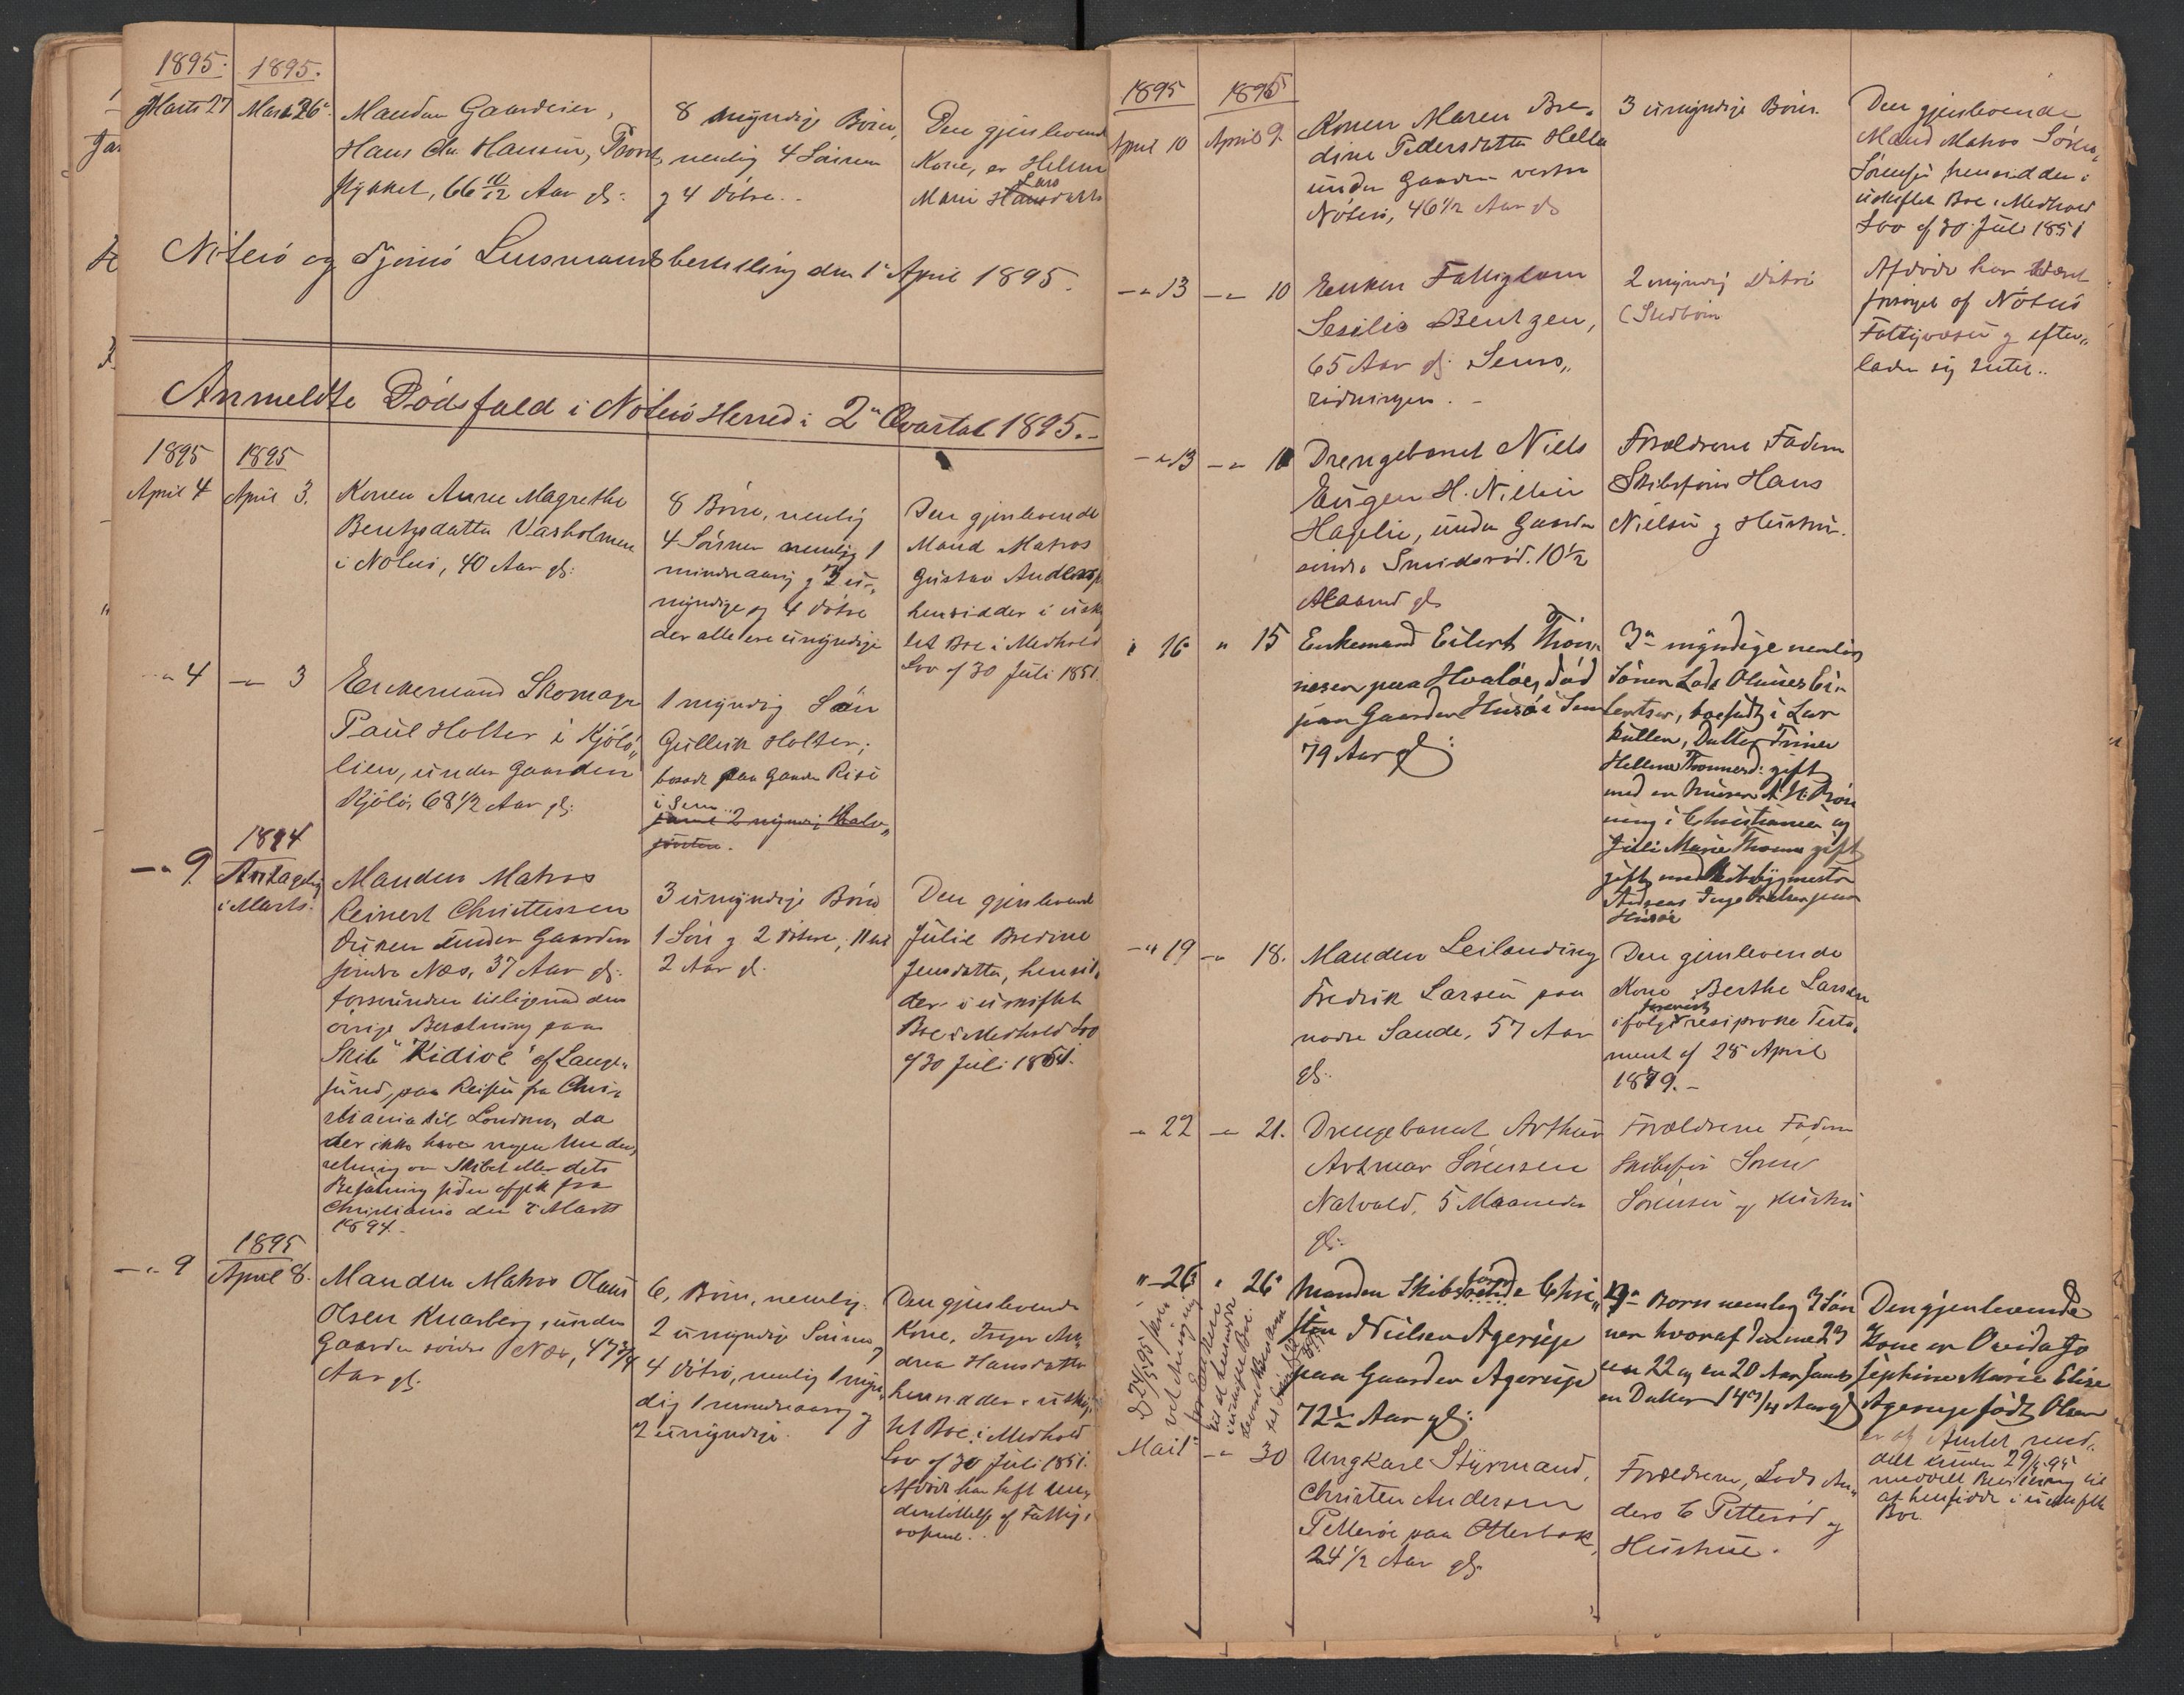 1895. 1895.
Marts 27 Marts 26. Manden Gaardeier,
Hans Chr. Hansen,
stykket, 66 10/12 Aar gl:
8 myndige Børn,
nemlig 4 Sønner
og 4 Døtre..
Den gjenlevende
Kone, er Helene
Marie Lars
Nøterø og Tjømø Lensmandsbestilling den 1ste April 1895.
Anmeldte Dødsfald i Nøterø Herred i 2det Qvartal 1895.-
1895 1895
April 4 April 3. Konen Anne Magrethe
Bentsdatter Vasholmen
i Nøterø, 40 Aar gl:
8 Børn, nemlig
4 Sønner nemlig 1
mindreaarig og 3 u-
myndige og 4 Døtre
der alle ere umyndige
Den gjenlevende
Mand Matros
Gustav Anders
hensidder i uskif
tet Boe i Medhold
Lov af 30 Juli 1851.
-"- 4 -"- 3 Enkemand Skomager
Paul Holter i Kjølø„
lien, under Gaarden
Kjølø, 68 1/2 Aar gl:
1 myndig Søn
Gullik Holter;
boende paa Gaarden Risø
i Sem..
samt 2 myndig Halv„
søstre.
-"- 9. 1894
Antagelig
i Marts. Manden Matros
Reinert Christensen
under Gaarden
søndre Næs, 37 Aar gl:
forsvunden tilligemed den
øvrige Besætning paa
Skib "Kidioe" af Lange„
sund, paa Reisen fra Chri„
stiania til London, da
der ikke haves nogen Under„
retning om Skibet eller dets
Besætning siden afgik fra
Christiania den 7 Marts
1894.-
3 umyndige Børn
1 Søn og 2 Døtre,
2 Aar gl.
Den gjenlevende
Julie Bredine
Jensdatter, hensid„
der i uskiftet
Boe i Medhold Lov
af 30 Juli 1851.
-"- 9 1895
April 8. Manden Matros Olaus
Olsen Knarberg, under
Gaarden søndre Næs, 47 3/4
Aar gl.
6, Børn, nemlig
2 umyndige Sønner og
4 Døtre, nemlig 1 myn„
dig 1 mindreaarig og
2 umyndige.
Den gjenlevende
Kone, Inger An„
drea Hansdatter
hensidder i uskif„
tet Boe i Medhold
Lov af 30 Juli 1851.
Afdøde har haft Un„
derstøttelse af Fattig„
væsenet..
1895 1895
April 10 April 9. Konen Maren Bre„
dine Pedersdatter Hella
under Gaarden vestre
Nøterø, 46 1/2 Aar gl
3 umyndige Børn.
Den gjenlevende
Mand Matros Søren
Sørensen hensidder i
uskiftet Boe i Medhold
Lov af 30 Juli 1851
-"- 13 -"- 10 Enken Fattiglem
Sesilie Bentzen,
65 Aar gl. Sems„
ridningen. -
2 myndig Døtre
(Stedbørn
Afdøde har været
forsørget af Nøterø
Fattigvæsen og efter„
lader sig intet..
-"- 13 -"- 10 Drengebarnet Niels
Eugen H. Nielsen
Hagelie, under Gaarden
søndre Smidsrød. 10 1/2
Maaned gl
Forældrene Faderen
Skibsfører Hans
Nielsen og Hustru.
" 16 " 15 Enkemand Eilert Thom„
nesen paa Hvaløe, død
paa Gaarden Husø i Sem
79 Aar gl:
3de myndige nemlig
Sønen Lods Olaves Ei„
lertsen, boesidd i Lar
kullen, Datter Trine
Hellene Thomnesd: gift
med en Murer A. H. Brøn
ning i Christiania og
Juli Marie Thomn gift
gift med Skibsbygmester
Andreas Ingebretsen paa
Husøe
-"- 19 -"- 18. Manden Leilending
Fredrik Larsen paa
nodre Sande, 57 Aar
gl:
Den gjenlevende
Kone Berthe Larsen
ifølge resiproke Testa„
ment af 28 April
1879.-
-"- 22 -"- 21. Drengebarnet Arthur
Artmar Sørensen
Natvald, 5 Maaneder
gl:
Forældrene Faderen
Skibsfør Søren
Sørensen og Hustru
"- 26 " 26 Manden Skibsfører Chri„
sten Nielsen Agerupe
paa Gaarden Agerupe
72 1/2 Aar gl:
4de Børn nemlig 3 Søn
ner hvoraf den ene 23
en 22 og en 20 Aar samt
en Datter 14 3/4 Aar gl
Den gjenlevende
Kone er Ovida Jo
sephine Marie Elise
Agerupe født Olsen
er af Amtet
29/5 95
meddelt Bevilling til
at hensidde i uskiftet
Boe.
Mai 1 -"- 30 Ungkarl Styrmand,
Christen Andersen
Petterøe paa Otterbæk,
24 1/2 Aar gl.
Forældrene, Lods An„
ders C Petterød og
Hustrue.